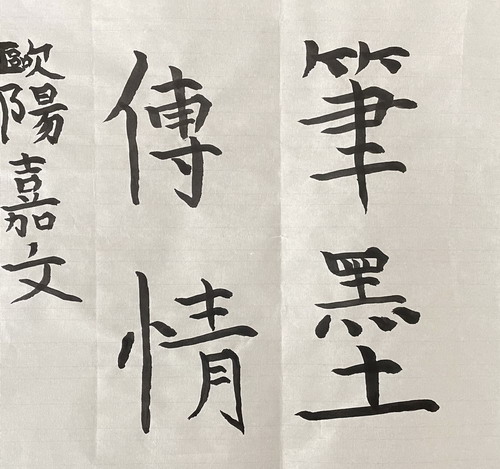 筆墨
傳情
歐陽嘉文